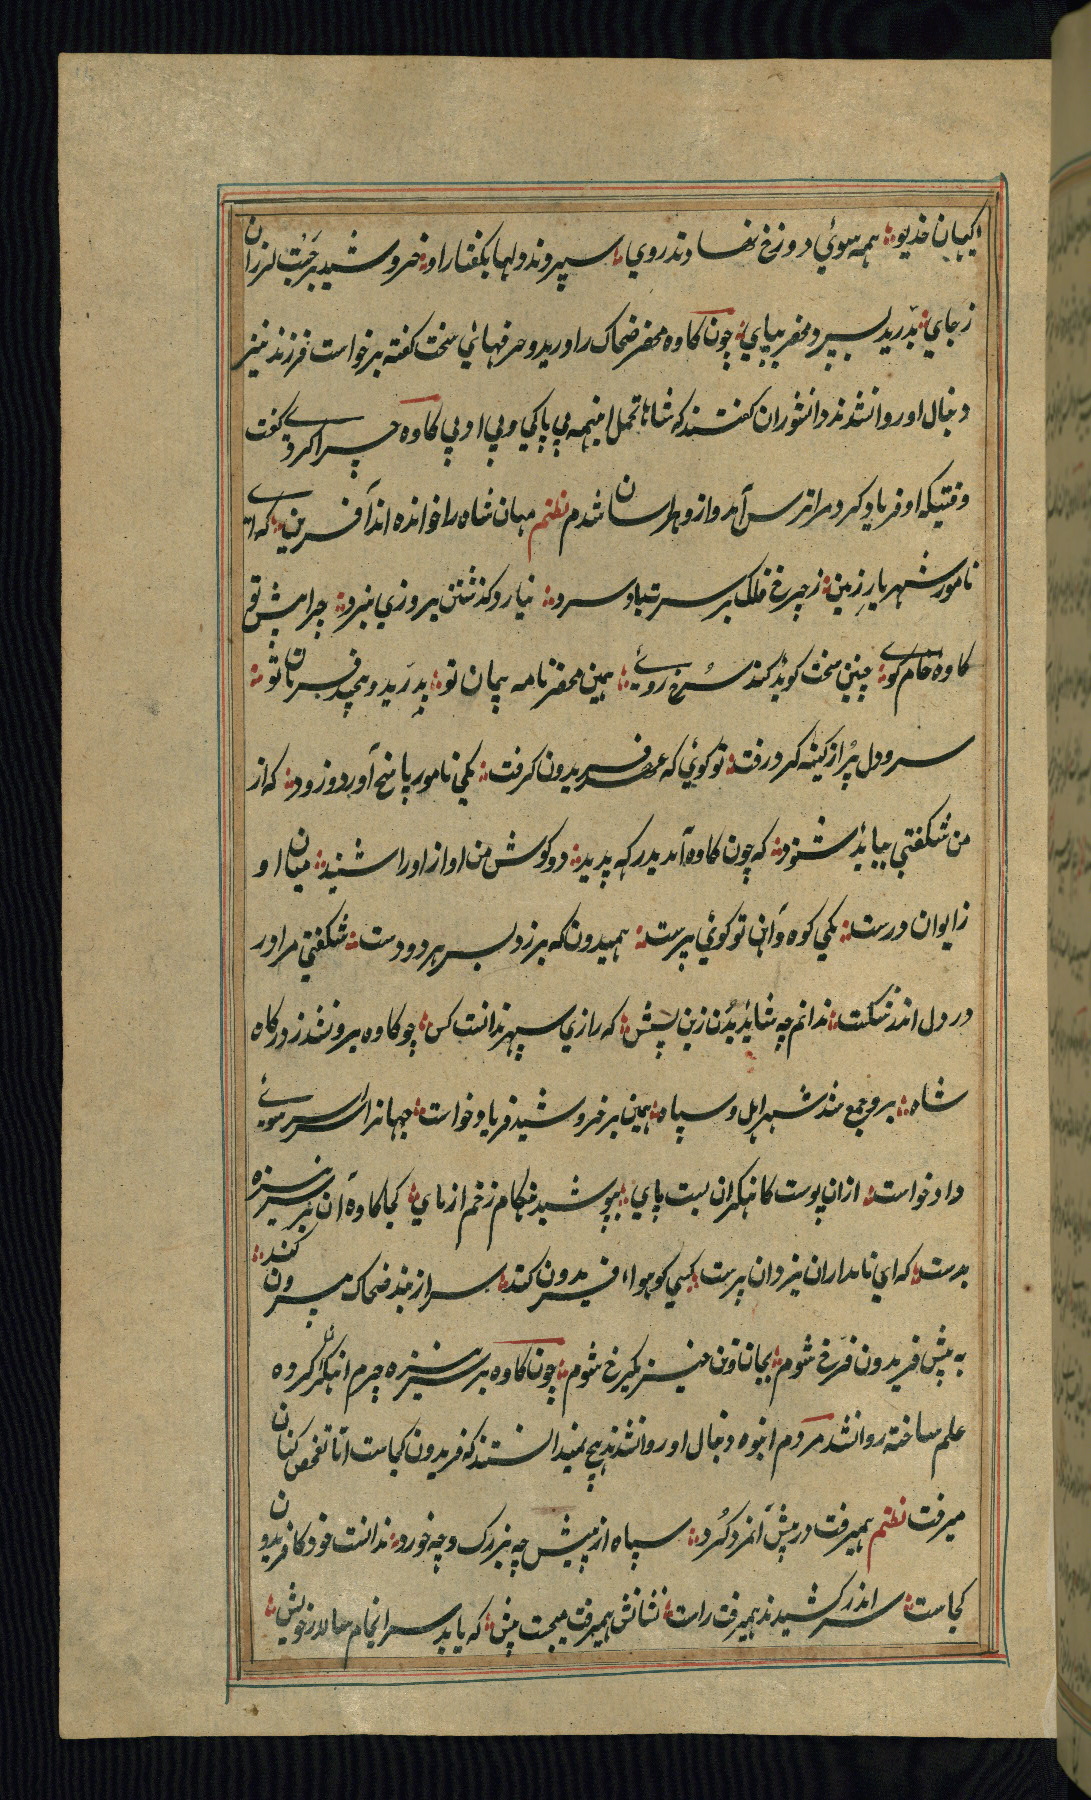 کیهان خدیو ؞ همه سوئی دوزخ نهادند روی ؞ سپردند دلها بکفتار او ؞ خروشید برجست لرزان
زجای ؞ بدرید بسپرد محضر بپای ؞ چون کاوه محضر ضحاک را درید و حرفهائی سخت کفته برخواست فرزند نیز
دنبال او روانشدند دانشوران کفتند که شاها تحمل اینهمه بی پاکی و بی ادبی کاوه چرا کردی کفت
وقتیکه او فریاد کرد مرا ترس آمد و از و هراسان شدم نظم مهان شاه را خوانده اند آفرین ؞ که ای
نامور شهریار زمین ؞ زچرخ فلک بر سرت باد سرد ؞ نیارد کذشتن بروزی نبرد ؞ چرا پیش تو
کاوهٔ خام کوی ؞ چنین سخت کوید کند سرخ روئی ؞ همین محضر نامه پیمان تو ؞ بدرید و پیچد ز فرمان تو ؞
سر و دل پر از کینه کرد و رفت ؞ تو کوئی که عهد فریدون کرفت ؞ یکی نامور پاسخ آورد زود ؞ که از
من شکفتی بباید شنود ؞ که چون کاوه آمد بدرکه پدید ؞ دو کوش من اواز او را شنید ؞ میان او
ز ایوان درست ؞ یکی کوه وآهن تو کوئی برست ؞ همیدون که برزد بسر هر دو دست ؞ شکفتی مرا در
در دل اندر شکست ؞ ندانم چه شاید بدن زین سپس ؞ که رازی سپهر ندانست کس ؞ چو کاوه برونشد ز درکاه
شاه ؞ برو جمع شد شهر اهل و سپاه ؞ همین بر خروشید فریاد خواست ؞ جهانرا سراسر سوئی
داد خواست ؞ ازان پوست کاهنکران بست پای ؞ بپوشید هنکام زخم از نای ؞ کجا کاوه آن بر سر نیزه
بدست ؞ که ای نامداران یزدان پرست ؞ کسی کو هواء فریدون کند ؞ سر از بند ضحاک بیرون کند ؞
به پیش فریدون فرخ شویم ؞ بجان و تن خیز یکرخ شویم ؞ چون کاوه بر سر نیزه چرم اهنکر کرده
علم ساخته روانشد مردم انبوه دنبال او روانشدند هیچ نمیدانستند که فریدون کجاست اتا تفحص کنان
میرفت نظم همیرفت در پیش آنمرد کُرد ؞ سپاه از پیش چه بزرک و چه خورد ؞ ندانست خود کافریدون
کجاست ؞ سر اندر کشیدند همیرفت راست ؞ نشانش همیرفت میجست پیش ؞ که یابد سرانجام سالار خویش ؞